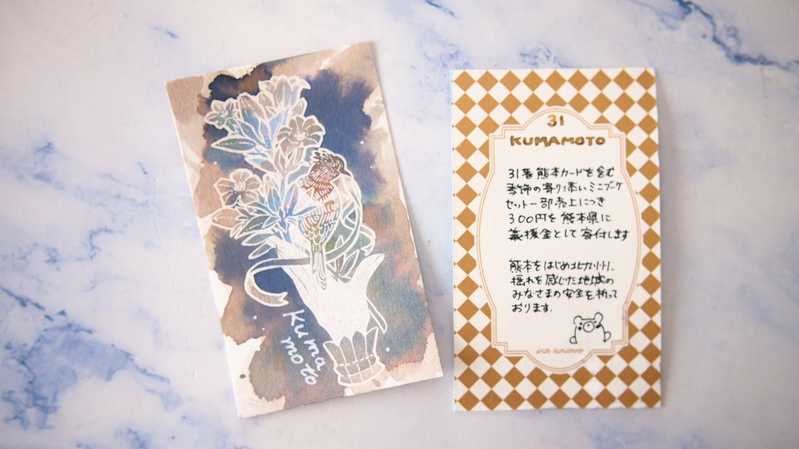 Kuma
moto
31
KUMAMOTO
31番 熊本カードを含む
季節の寄り添いミニブーケ
セット一部売上につき
300円を熊本県に
義援金として寄付します
熊本をはじめ北九州、
揺れを感じた地域の
みなさまの安全を祈って
おります.